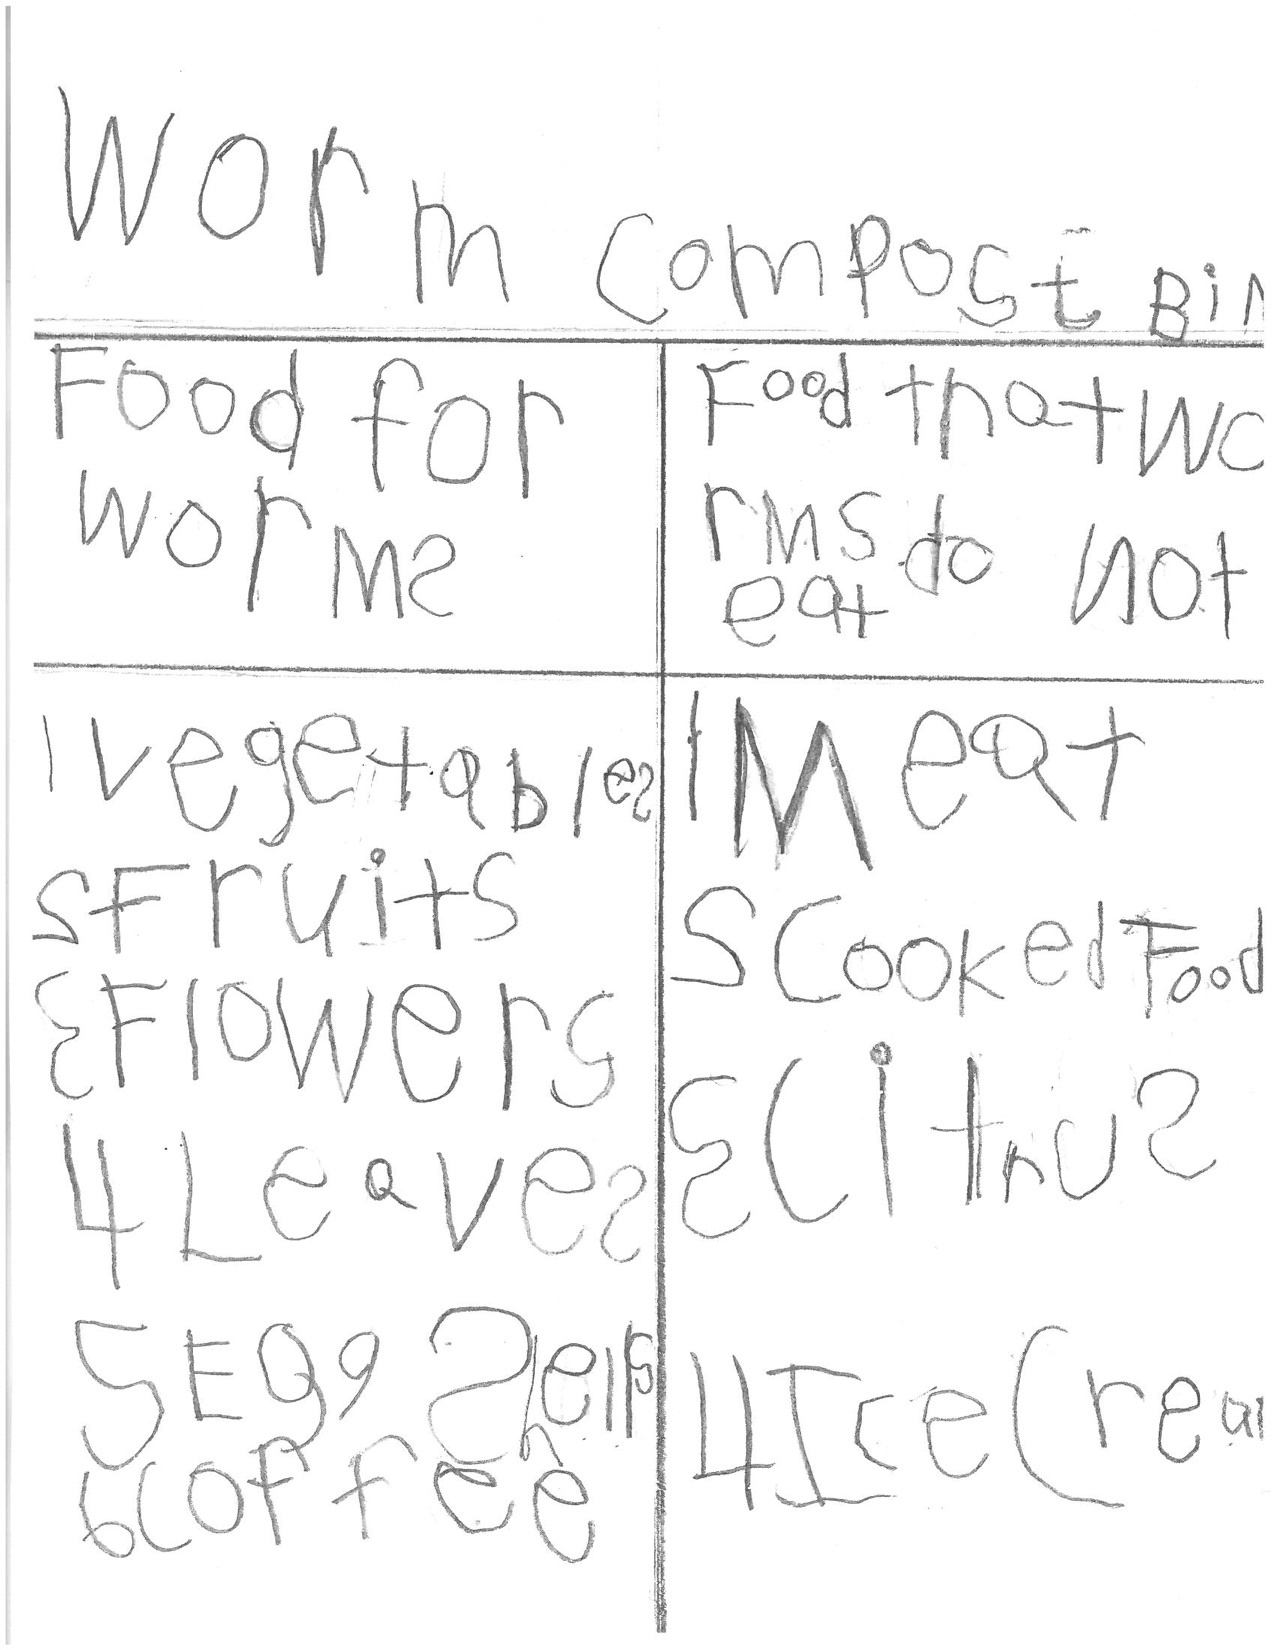 Worm Compost Bin
Food for
worms
1 Vegetables
2 Fruits
3 Flowers
4 Leaves
5 Egg Shells
6 Coffee
Food that wo
rms do not
eat
1 Meat
2 Cooked Food
3 Citrus
4 Ice Crea